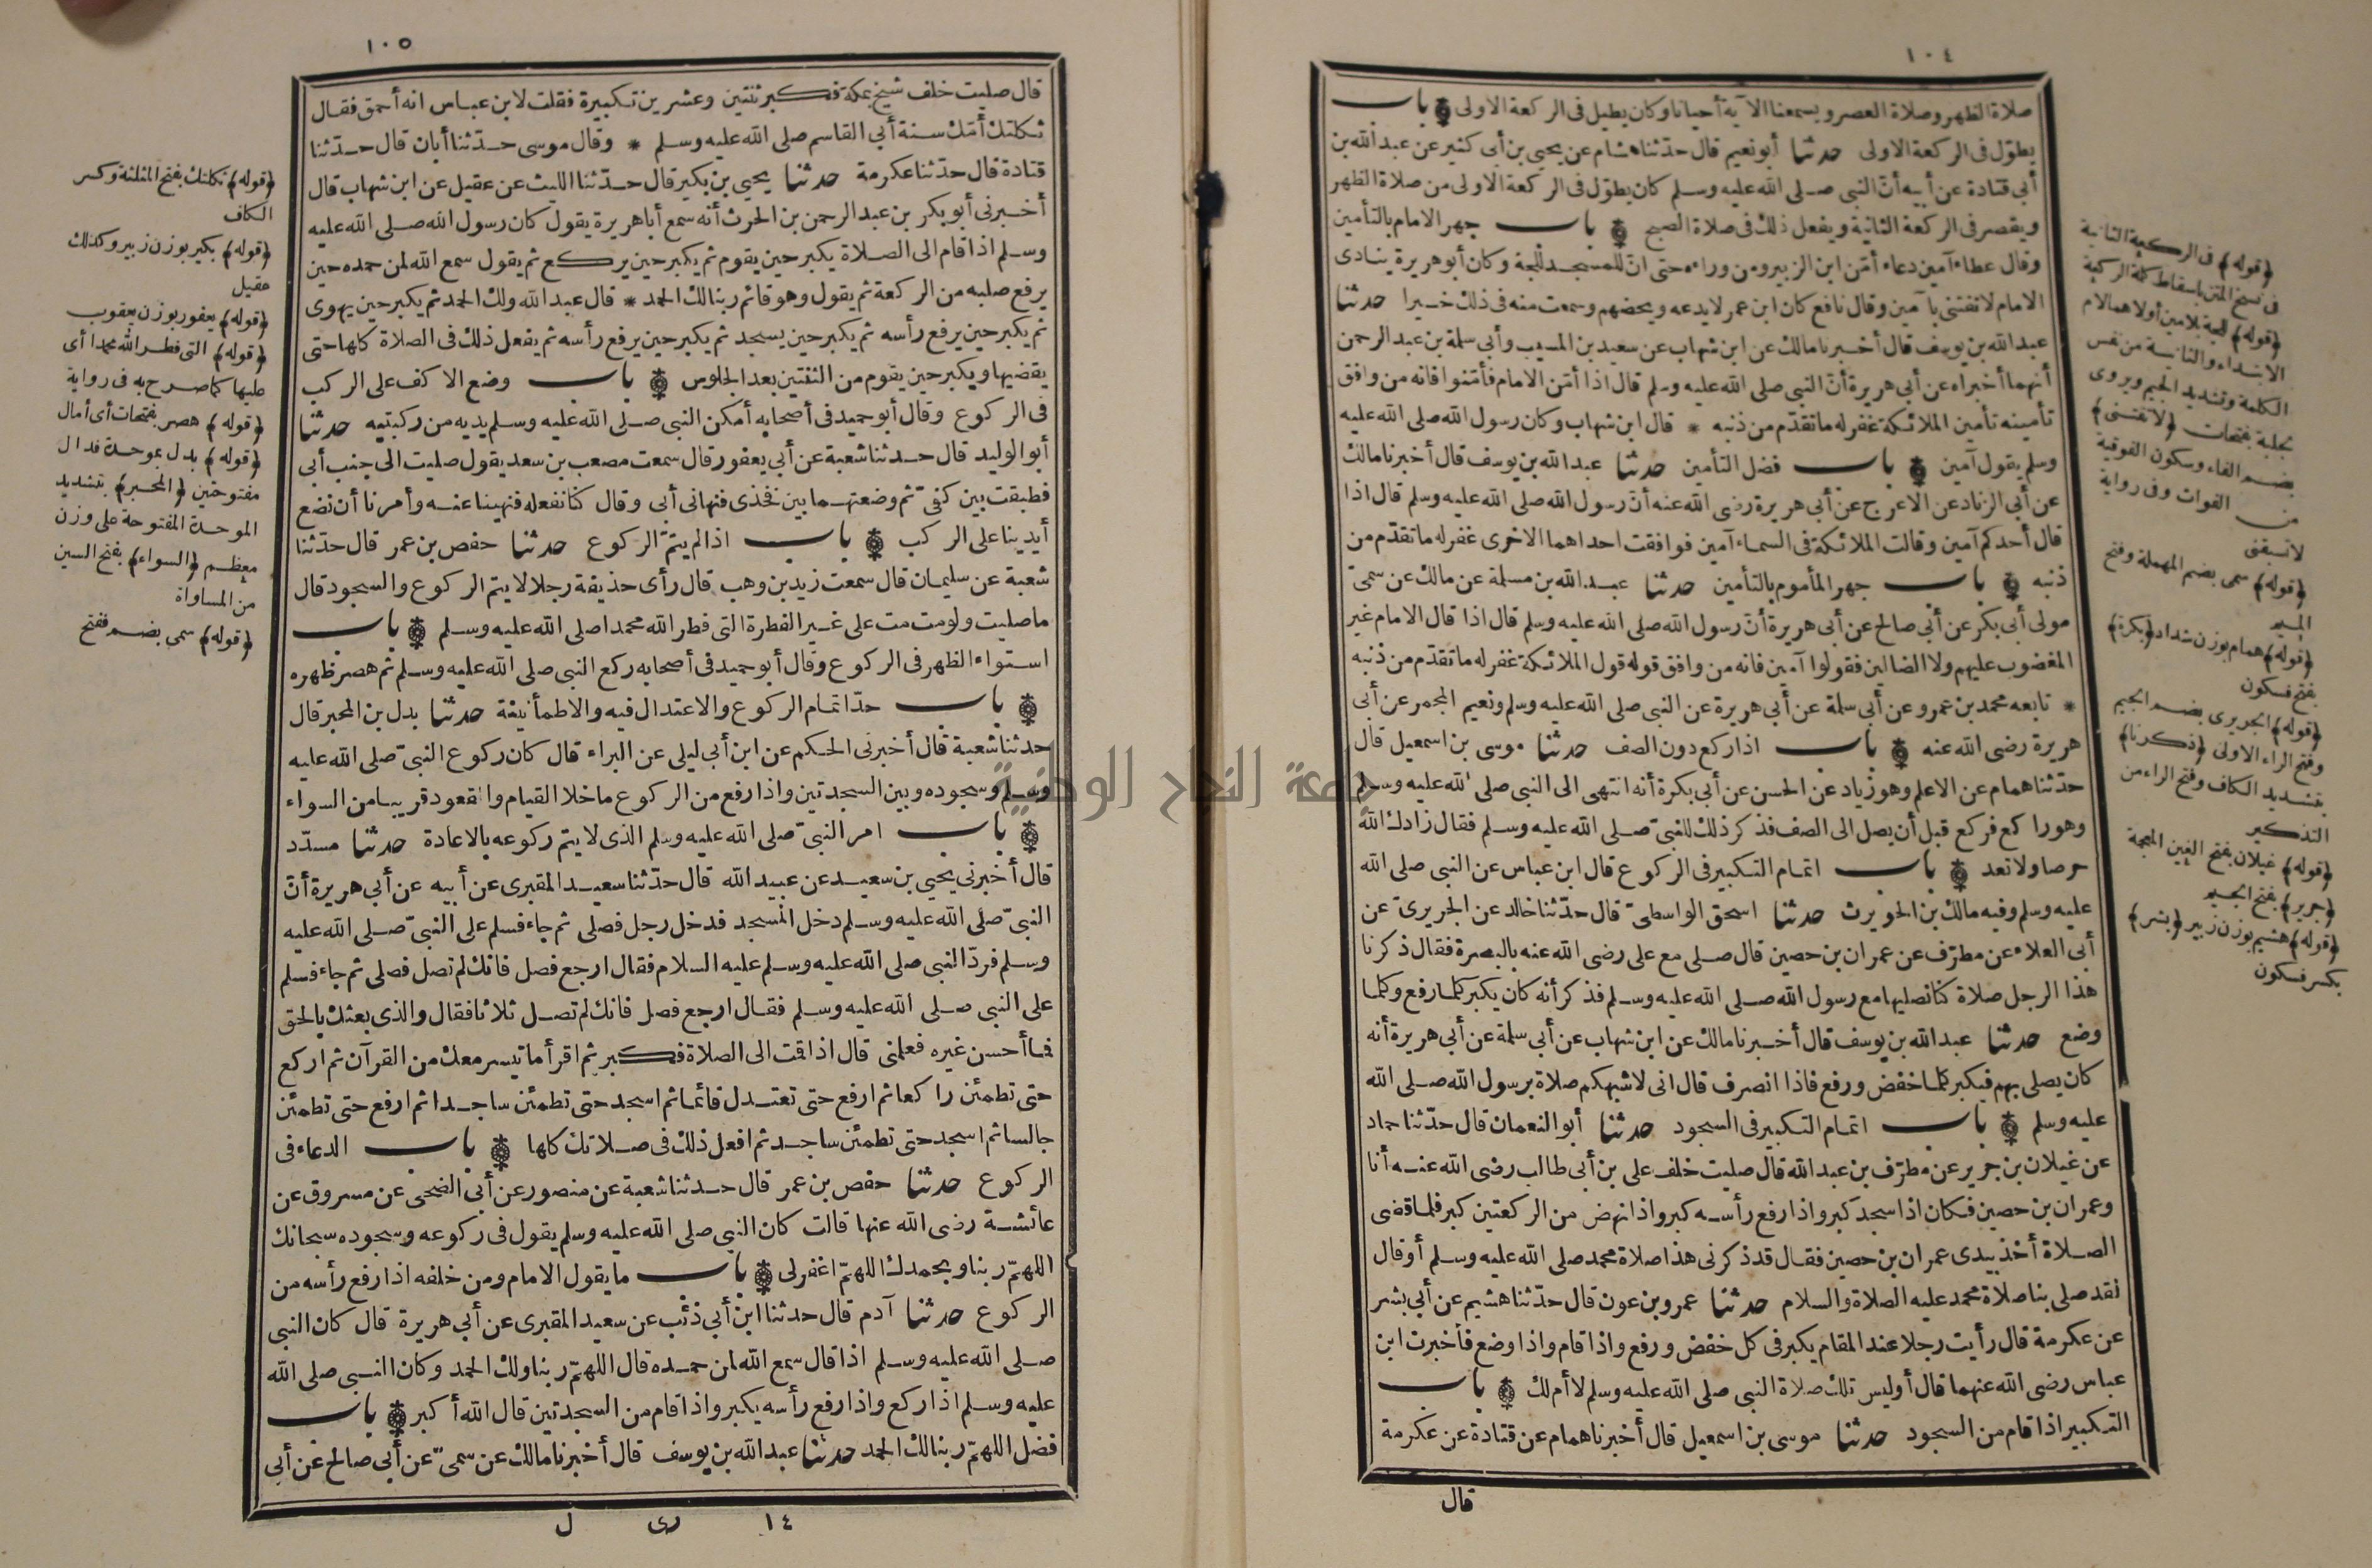 ١٠٤
صلاة الظهر وصلاة العصر ويسمعنا الآية أحيانا وكان يطيل فى الركعة الاولى باب
يطوّل فى الركعة الاولى حدثنا أبو نعيم قال حدّثنا هشام عن يحيى بن أبى كثير عن عبد الله بن
أبى قتادة عن أبيه أنّ النبى صلى الله عليه وسلم كان يطوّل فى الركعة الاولى من صلاة الظهر
ويقصر فى الركعة الثانية ويفعل ذلك فى صلاة الصبح باب جهر الامام بالتأمين
وقال عطاء آمين دعاء أمّن ابن الزبير ومن وراءه حتى انّ للمسجد للجة وكان أبو هريرة ينادى
الامام لا تفتنى بآمين وقال نافع كان ابن عمر لا يدعه ويحضهم وسمعت منه فى ذلك خيرا حدثنا
عبد الله بن يوسف قال أخبرنا مالك عن ابن شهاب عن سعيد بن المسيب وأبى سلمة بن عبد الرحمن
أنهما أخبراه عن أبى هريرة أنّ النبى صلى الله عليه وسلم قال اذا أمّن الامام فأمّنوا فانه من وافق
تأمينه تأمين الملائكة غفر له ما تقدّم من ذنبه * قال ابن شهاب وكان رسول الله صلى الله عليه
وسلم يقول آمين باب فضل التأمين حدثنا عبد الله بن يوسف قال أخبرنا مالك
عن أبى الزناد عن الاعرج عن أبى هريرة رضى الله عنه أنّ رسول الله صلى الله عليه وسلم قال اذا
قال أحدكم آمين وقالت الملائكة فى السماء آمين فوافقت احداهما الاخرى غفر له ما تقدّم من
ذنبه باب جهر المأموم بالتأمين حدثنا عبد الله بن مسلمة عن مالك عن سمىّ
مولى أبى بكر عن أبى صالح عن أبى هريرة أنّ رسول الله صلى الله عليه وسلم قال اذا قال الامام غير
المغضوب عليهم ولا الضالين فقولوا آمين فانه من وافق قوله قول الملائكة غفر له ما تقدّم من ذنبه
* تابعه محمد بن عمرو عن أبى سلمة عن أبى هريرة عن النبى صلى الله عليه وسلم ونعيم المجمر عن أبى
هريرة رضى الله عنه باب اذا ركع دون الصف حدثنا موسى بن اسمعيل قال
حدّثنا همام عن الاعلم وهو زياد عن الحسن عن أبى بكرة أنه انتهى الى النبى صلى الله عليه وسلم
وهو راكع فركع قبل أن يصل الى الصف فذكر ذلك للنبىّ صلى الله عليه وسلم فقال زادك الله
حرصا ولا تعد باب اتمام التكبير فى الركوع قال ابن عباس عن النبى صلى الله
عليه وسلم وفيه مالك بن الحويرث حدثنا اسحق الواسطىّ قال حدّثنا خالد عن الجريرىّ عن
أبى العلاء عن مطرّف عن عمران بن حصين قال صلى مع على رضى الله عنه بالبصرة فقال ذكرنا
هذا الرجل صلاة كنا نصليها مع رسول الله صلى الله عليه وسلم فذكر أنه كان يكبر كلما رفع وكلما
وضع حدثنا عبد الله بن يوسف قال أخبرنا مالك عن ابن شهاب عن أبى سلمة عن أبى هريرة أنه
كان يصلى بهم فيكبر كلما خفض ورفع فاذا انصرف قال انى لاشبهكم صلاة برسول الله صلى الله
عليه وسلم باب اتمام التكبير فى السجود حدثنا أبو النعمان قال حدّثنا حماد
عن غيلان بن جرير عن مطرّف بن عبد الله قال صليت خلف على بن أبى طالب رضى الله عنه أنا
وعمران بن حصين فكان اذا سجد كبر واذا رفع رأسه كبر واذا نهض من الركعتين كبر فلما قضى
الصلاة أخذ بيدى عمران بن حصين فقال قد ذكرنى هذا صلاة محمد صلى الله عليه وسلم أو قال
لقد صلى بنا صلاة محمد عليه الصلاة والسلام حدثنا عمرو بن عون قال حدّثنا هشيم عن أبى بشر
عن عكرمة قال رأيت رجلا عند المقام يكبر فى كل خفض ورفع واذا قام واذا وضع فأخبرت ابن
عباس رضى الله عنهما قال أوليس تلك صلاة النبى صلى الله عليه وسلم لا أم لك باب
التكبير اذا قام من السجود حدثنا موسى بن اسمعيل قال أخبرنا همام عن قتادة عن عكرمة
قال
(قوله) فى الركعة الثانية
فى نسخ المتن باسقاط كلمة الركعة
(قوله) للجة بلامين أولاهما لام
الابتداء والثانية من نفس
الكلمة وتشديد الجيم ويروى
لجلبة بفتحات (لا تفتنى)
بضم الفاء وسكون الفوقية
من الفوات وفى رواية
لا تسبقنى
(قوله) سمى بضم المهملة وفتح
الميم
(قوله) همام بوزن شداد (بكرة)
بفتح فسكون
(قوله) الجريرى بضم الجيم
وفتح الراء الاولى (ذكرنا)
بتشديد الكاف وفتح الراء من
التذكير
(قوله) غيلان بفتح الغين المعجمة
(جرير) بفتح الجيم
(قوله) هشيم بوزن زبير (بشر)
بكسر فسكون
١٠٥
قال صليت خلف شيخ بمكة فكبر ثنتين وعشرين تكبيرة فقلت لابن عباس انه أحمق فقال
ثكلتك أمّك سنة أبى القاسم صلى الله عليه وسلم * وقال موسى حدّثنا أبان قال حدّثنا
قتادة قال حدّثنا عكرمة حدثنا يحيى بن بكير قال حدّثنا الليث عن عقيل عن ابن شهاب قال
أخبرنى أبو بكر بن عبد الرحمن بن الحرث أنه سمع أبا هريرة يقول كان رسول الله صلى الله عليه
وسلم اذا قام الى الصلاة يكبر حين يقوم ثم يكبر حين يركع ثم يقول سمع الله لمن حمده حين
يرفع صلبه من الركعة ثم يقول وهو قائم ربنا لك الحمد * قال عبد الله ولك الحمد ثم يكبر حين يهوى
ثم يكبر حين يرفع رأسه ثم يكبر حين يسجد ثم يكبر حين يرفع رأسه ثم يفعل ذلك فى الصلاة كلها حتى
يقضيها ويكبر حين يقوم من الثنتين بعد الجلوس باب وضع الاكف على الركب
فى الركوع وقال أبو حميد فى أصحابه أمكن النبى صلى الله عليه وسلم يديه من ركبتيه حدثنا
أبو الوليد قال حدثنا شعبة عن أبى يعفور قال سمعت مصعب بن سعد يقول صليت الى جنب أبى
فطبقت بين كفىّ ثم وضعتهما بين فخذى فنهانى أبى وقال كنا نفعله فنهينا عنه وأمرنا أن نضع
أيدينا على الركب باب اذا لم يتمّ الركوع حدثنا حفص بن عمر قال حدّثنا
شعبة عن سليمان قال سمعت زيد بن وهب قال رأى حذيفة رجلا لا يتم الركوع والسجود قال
ما صليت ولو مت مت على غير الفطرة التى فطر الله محمدا صلى الله عليه وسلم باب
استواء الظهر فى الركوع وقال أبو حميد فى أصحابه ركع النبى صلى الله عليه وسلم ثم هصر ظهره
باب حدّ اتمام الركوع والاعتدال فيه والاطمأنينة حدثنا بدل بن المحبر قال
حدثنا شعبة قال أخبرنى الحكم عن ابن أبى ليلى عن البراء قال كان ركوع النبىّ صلى الله عليه
وسلم وسجوده وبين السجدتين واذا رفع من الركوع ما خلا القيام والقعود قريبا من السواء
باب امر النبىّ صلى الله عليه وسلم الذى لا يتم ركوعه بالاعادة حدثنا مسدّد
قال أخبرنى يحيى بن سعيد عن عبيد الله قال حدّثنا سعيد المقبرى عن أبيه عن أبى هريرة أنّ
النبىّ صلى الله عليه وسلم دخل المسجد فدخل رجل فصلى ثم جاء فسلم على النبىّ صلى الله عليه
وسلم فردّ النبى صلى الله عليه وسلم عليه السلام فقال ارجع فصل فانك لم تصل فصلى ثم جاء فسلم
على النبى صلى الله عليه وسلم فقال ارجع فصل فانك لم تصل ثلاثا فقال والذى بعثك بالحق
فما أحسن غيره فعلمنى قال اذا قمت الى الصلاة فكبر ثم اقرأ ما تيسر معك من القرآن ثم اركع
حتى تطمئن راكعا ثم ارفع حتى تعتدل قائما ثم اسجد حتى تطمئن ساجدا ثم ارفع حتى تطمئن
جالسا ثم اسجد حتى تطمئن ساجد ثم افعل ذلك فى صلاتك كلها باب الدعاء فى
الركوع حدثنا حفص بن عمر قال حدثنا شعبة عن منصور عن أبى الضحى عن مسروق عن
عائشة رضى الله عنها قالت كان النبى صلى الله عليه وسلم يقول فى ركوعه وسجوده سبحانك
اللهمّ ربنا وبحمدك اللهمّ اغفر لى باب ما يقول الامام ومن خلفه اذا رفع رأسه من
الركوع حدثنا آدم قال حدثنا ابن أبى ذئب عن سعيد المقبرى عن أبى هريرة قال كان النبى
صلى الله عليه وسلم اذا قال سمع الله لمن حمده قال اللهمّ ربنا ولك الحمد وكان النبى صلى الله
عليه وسلم اذا ركع واذا رفع رأسه يكبر واذا قام من السجدتين قال الله أكبر باب
فضل اللهمّ ربنا لك الحمد حدثنا عبد الله بن يوسف قال أخبرنا مالك عن سمىّ عن أبى صالح عن أبى
١٤ رى ل
(قوله) ثكلتك بفتح المثلثة وكسر
الكاف
(قوله) بكير بوزن زبير وكذلك
عقيل
(قوله) يعفور بوزن يعقوب
(قوله) التى فطر الله محمدا أى
عليها كما صرح به فى رواية
(قوله) هصر بفتحات أى أمال
(قوله) بدل بموحدة فدال
مفتوحتين (المحبر) بتشديد
الموحدة المفتوحة على وزن
معظم (السواء) بفتح السين
من المساواة
(قوله) سمى بضم ففتح
جامعة النجاح الوطنية